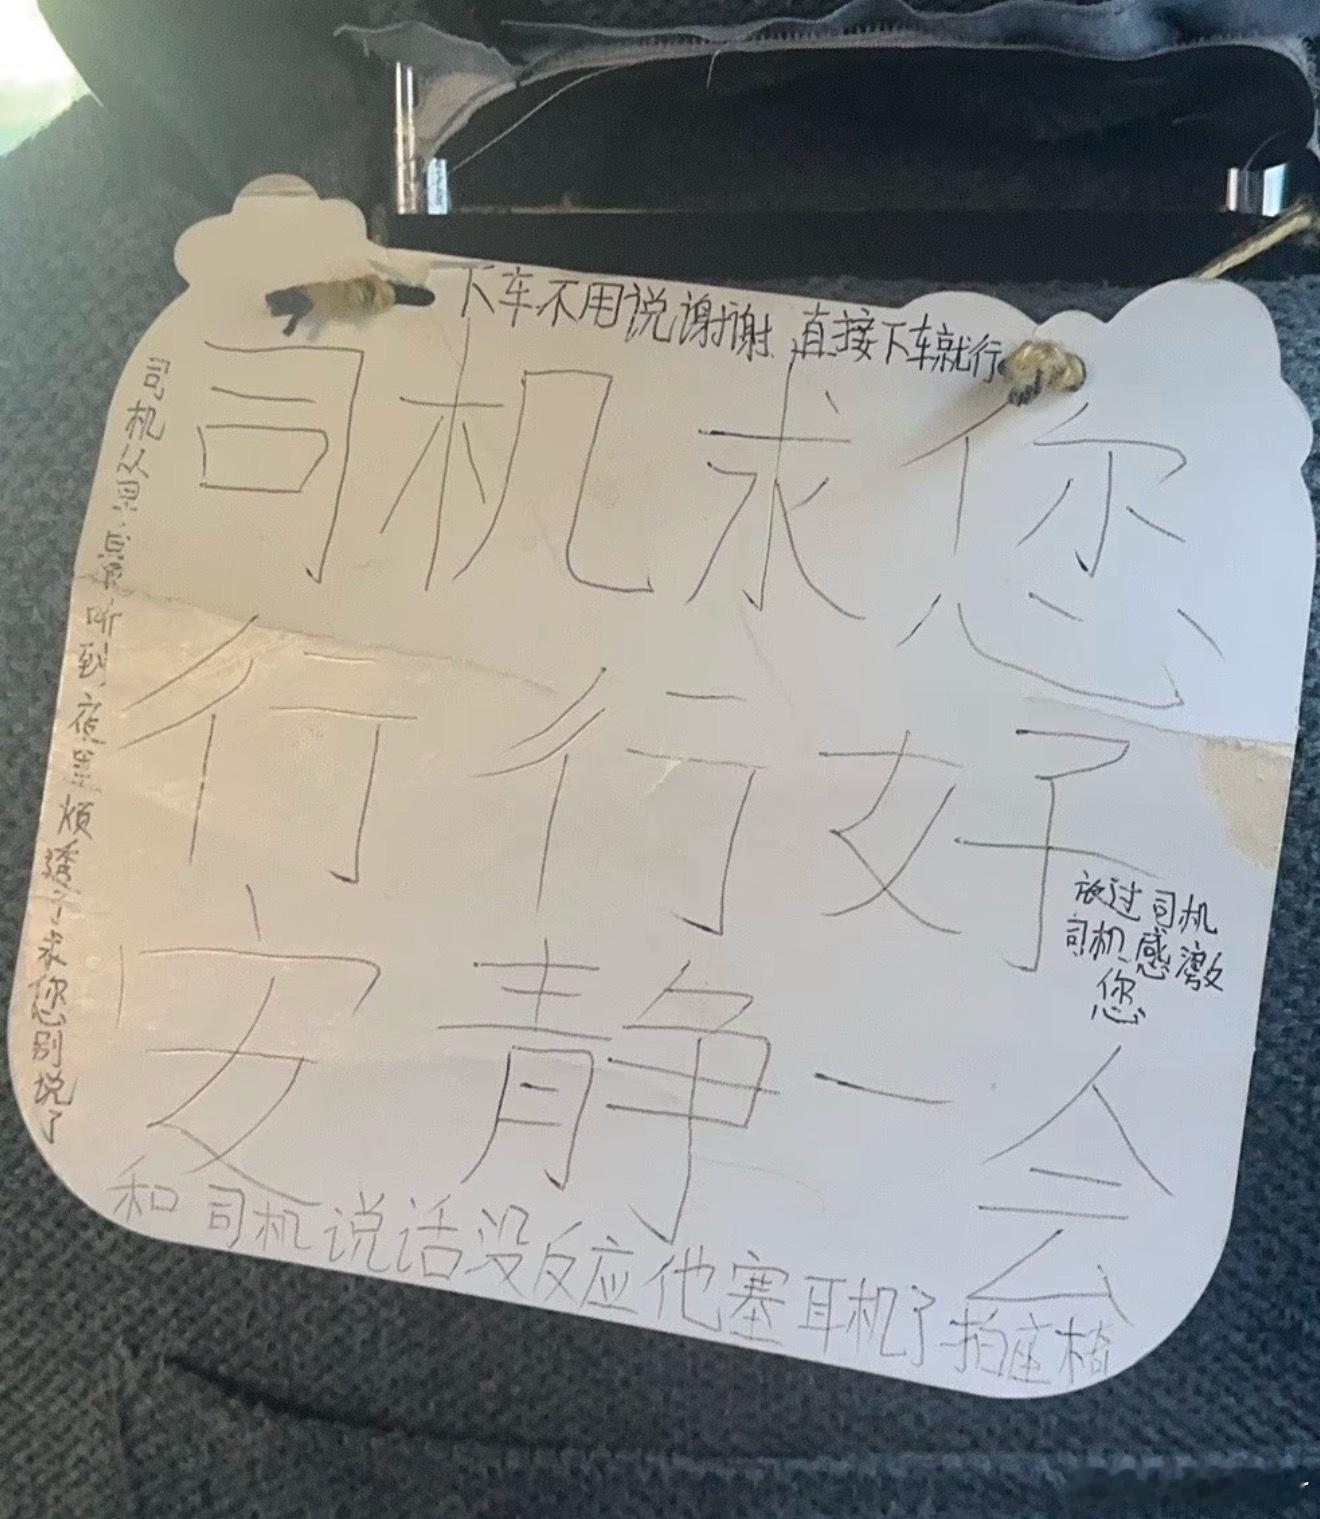 下车不用说谢谢 直接下车就行
司机求您
行行好
安静一会
放过司机
司机感激
您
司机从早晨听到夜里烦透了求您别说了
和司机说话没反应他塞耳机了拍座椅